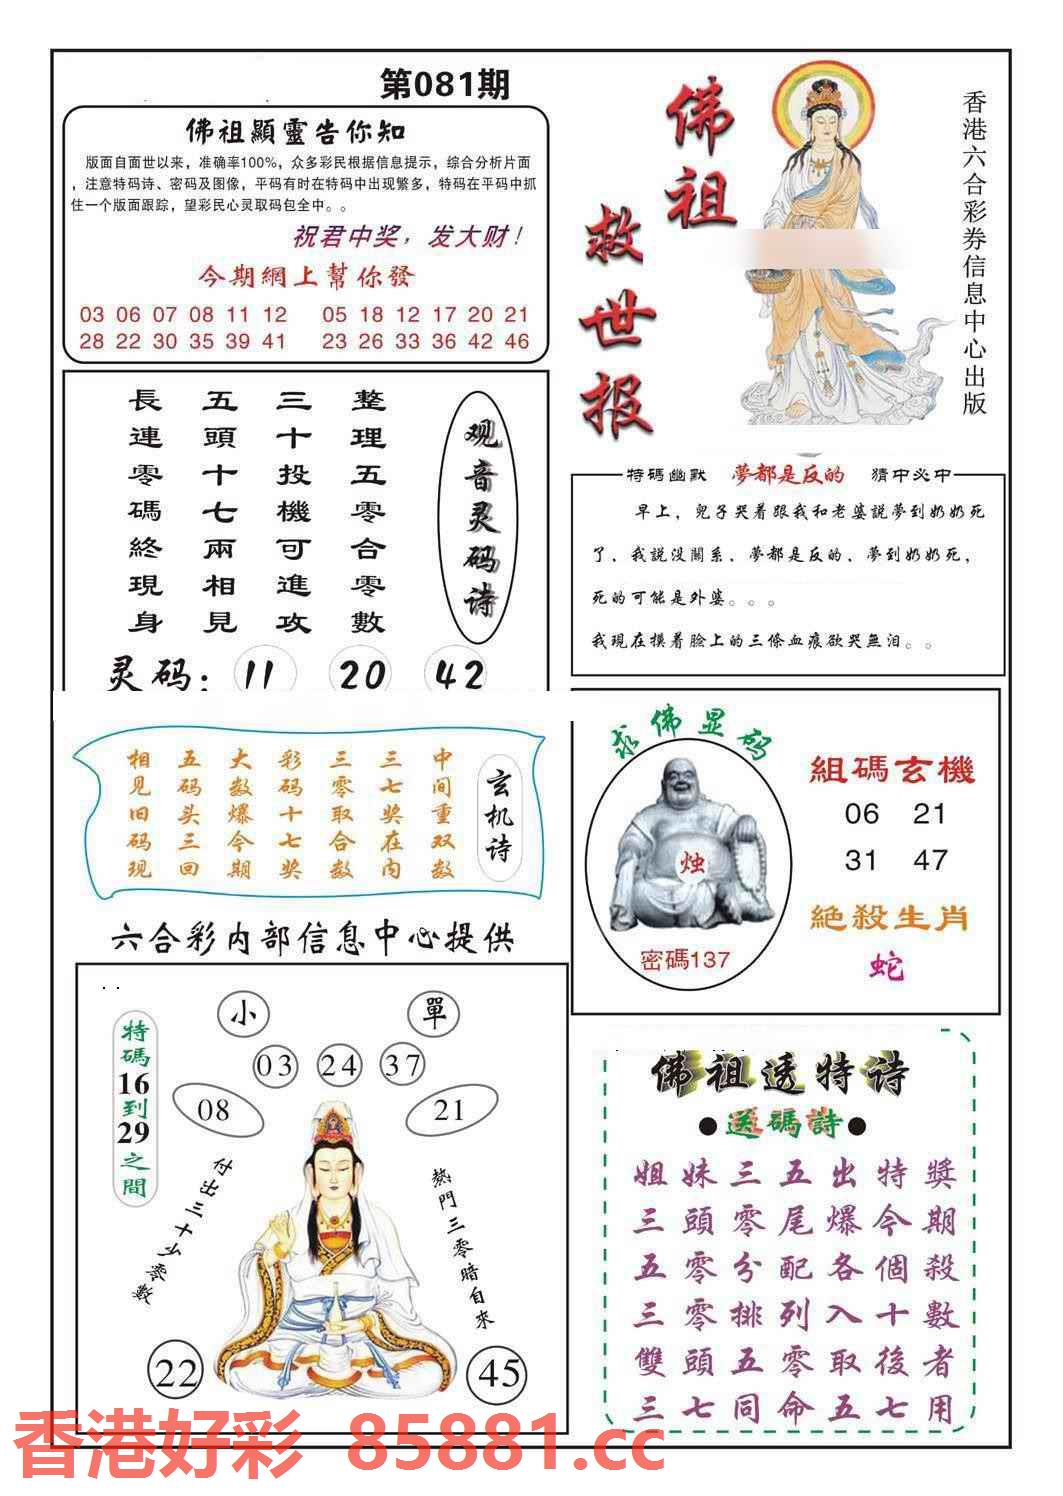 第081期
佛祖顯靈告你知
版面自面世以来，准确率100%，众多彩民根据信息提示，综合分析片面
，注意特码诗、密码及图像，平码有时在特码中出现繁多，特码在平码中抓
住一个版面跟踪，望彩民心灵取码包全中。。
祝君中奖，发大财！
今期網上幫你發
03 06 07 08 11 12 05 18 12 17 20 21
28 22 30 35 39 41 23 26 33 36 42 46
佛祖
救世报
香港六合彩券信息中心出版
观音灵码诗
整理五零合零數
三十投機可進攻
五頭十七兩相見
長連零碼終現身
灵码：11 20 42
特碼幽默 夢都是反的 猜中必中
早上，兒子哭着跟我和老婆説夢到奶奶死
了，我説没關系，夢都是反的，夢到奶奶死，
死的可能是外婆。。。
我現在摸着臉上的三條血痕欲哭無泪。。
玄机诗
中间重双数
三七奖在内
三零取合数
彩码十七奖
大数爆今期
五码头三回
相见旧码现
求佛显码
烛
密碼137
組碼玄機
06 21
31 47
絶殺生肖
蛇
六合彩内部信息中心提供
特碼16到29之間
小 單
03 24 37
08 21
付出三十少零數
熱門三零暗自來
22 45
佛祖透特诗
●送碼詩●
姐妹三五出特獎
三頭零尾爆今期
五零分配各個殺
三零排列入十數
雙頭五零取後者
三七同命五七用
香港好彩 85881.cc